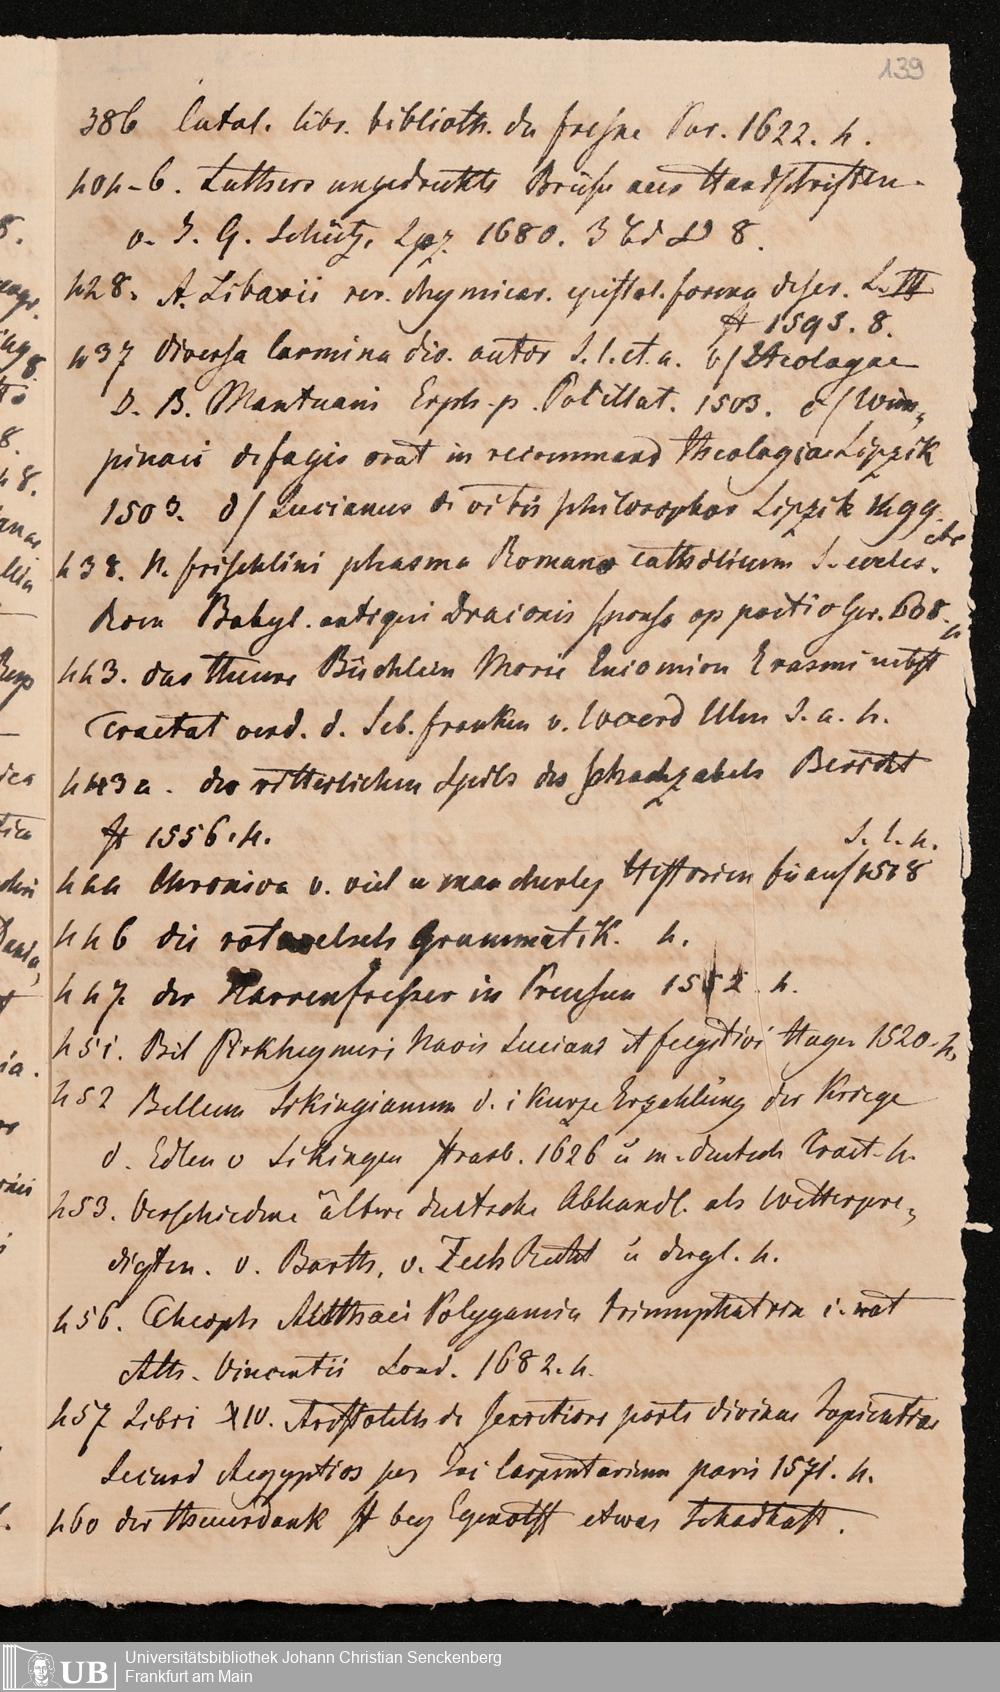 139
386 Catal. libr. biblioth. du fresne Par. 1622. 4.
404-6. Luthers ungedrukte Briefe aus Handschriften.
v. J. G. Schütz. Lpz. 1680. 3 Bd 8.
428. A. Libavii rer. chymicar. epistol. forma descr. L.
ff 1593. 8.
437 diversa Carmina div. autor S. l. et. a. b/ Theologae
D. B. Mantuani Erph. p. 1503. c/ Wim„
pinaei orat in recommand theologiae Lipzik
1503. d/ Lucianus de vitis philosophor Lipzik 1499.
438. N. frischlini phasma Romano catholicum S. eccles.
Rom Babyl. antiqui Draconis sponse 608.
4
443. das theure Büchlein Morie Encomion Erasmi nebst
Tractat verd. d. Seb. franken v. Woerd Ulm S. a. 4.
443 a. des ritterlichen Spils des schachzabels Bericht
ff 1556. 4.
S. l. 4.
444 Chronica v. viel u mancherley Historien bis auf 1508
446 die rotwelsch Grammatik. 4.
447. der Narrenfresser in Preussen 1552. 4.
451. Bil Pirkheymeri Navis Luciani et fugitivi Hagen 1520. 4.
452 Bellum Sikingianum d. i kurze Erzehlung der Kriege
d. Edlen v Sikingen strasb. 1626 u m. deutsch Tract. 4.
453. Verschiedene ältere deutsche Abhandl. als Wetterpre„
digten. v. Barth. v. Zech Recht u dergl. 4.
456. Theoph Aletthaei Polygamia triumphatrix i. not
Ath. Vincentii Lond. 1682. 4.
457 Libri XIV. Aristotelis de secretiore parte divinae Sapientiae
Secund Aegyptios per Jac Carpentarium paris 1571. 4.
460 der theuerdank ff bey Egenolff etwas Schadhaft.
UB
Universitätsbibliothek Johann Christian Senckenberg
Frankfurt am Main